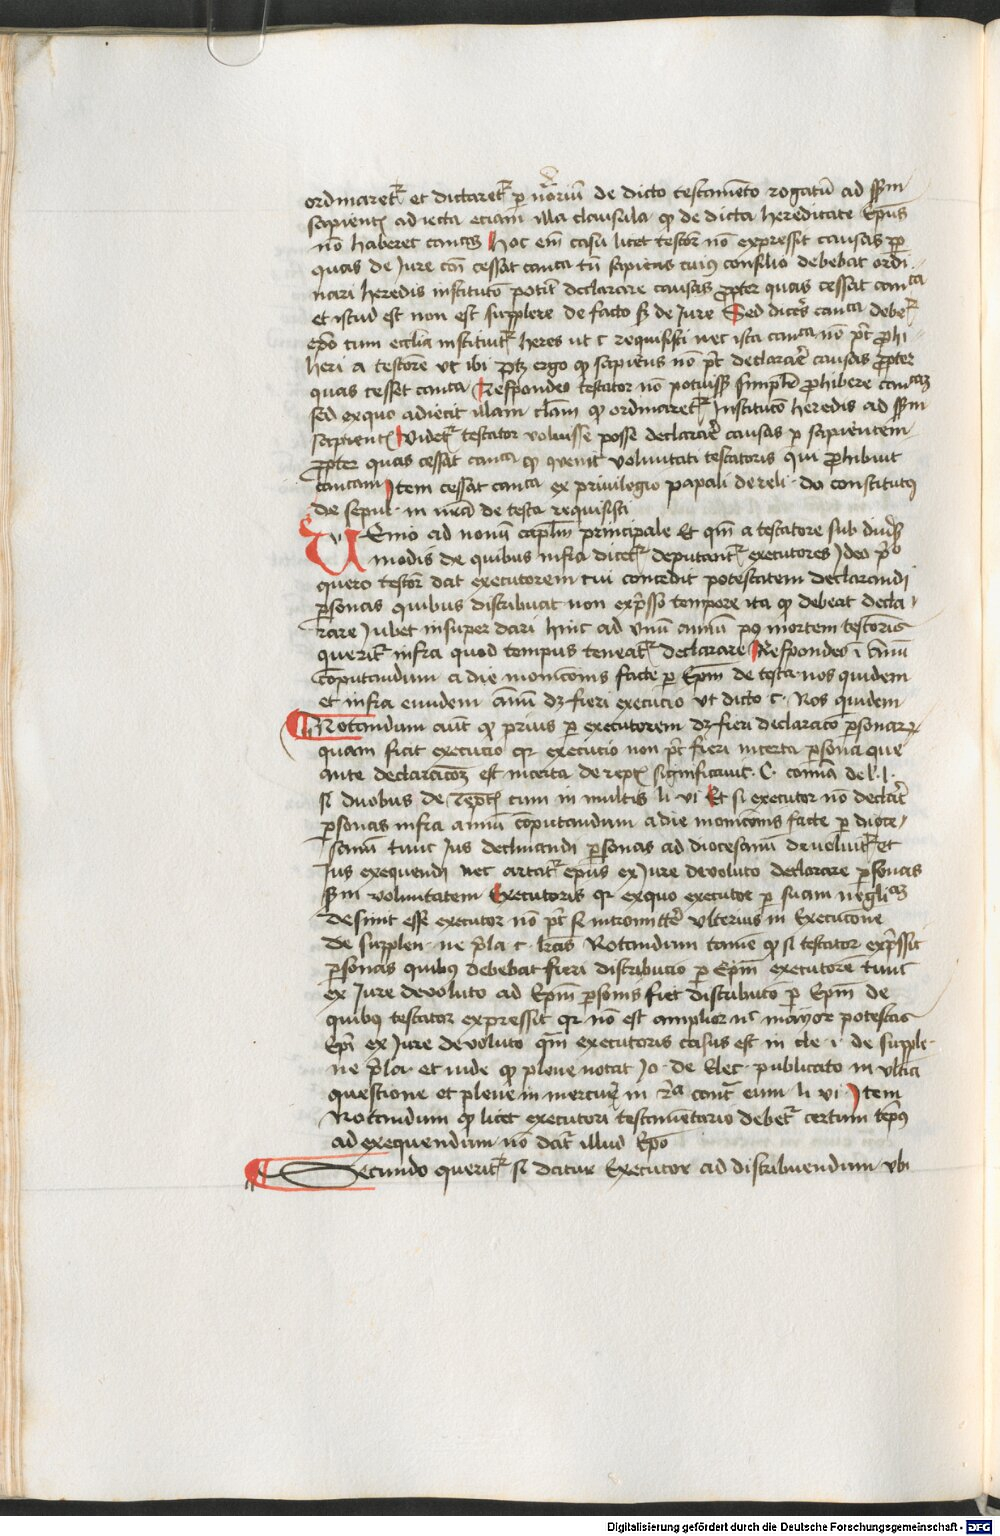 ordinaret᷑ et dictaret᷑ ꝑ notariū de dicto testamēto rogatū ad ꝯsiliū
sapientis adiecta etiam illa clausula ꝙ de dicta hereditate Ep̄us
nō haberet canōcā Hoc em̄ casu licet testor̄ nō expressit causas ꝓpter
quas de Jure cōi cessat canōca tn̄ sapiens cuiꝰ consilio debebat ordi
nari heredis institucō potuit declarare causas ꝓpter quas cessat canōca
et istud est non est supplere de facto sꝫ de Jure Sed dices canōca debet᷑
ep̄o cum ecclīa instituit᷑ heres ut c requisisti nec ista canōca nō pōt ꝓhi
beri a testore vt ibi ptꝫ ergo ꝙ sapiens nō pōt declarare causas ꝓpter
quas cesset canōca Respondeo testator nō potuisset simplr̄ ꝓhibere canōcā
sed exquo adiecit illam clām ꝙ ordinaret᷑ Institucō heredis ad ꝯsiliū
sapientis videt᷑ testator voluisse posse declarare causas ꝑ sapientem
ꝓpter quas cessat canōca ꝙ ꝯuenit voluntati testatoris qui ꝓhibuit
canōcam Item cessat canōca ex priuilegio papali de reli. do constitutꝰ
de sepul. in nr̄a de testa requisisti
VEnio ad nonū capl̄m principale Et qm̄ a testatore sub diūsis
modis de quibus infra dicet᷑ deputant᷑ executores Ideo pͦ
quero testor̄ dat executorem cui concedit potestatem declarandi
ꝑsonas quibus distribuat non exp̄sso tempore ita ꝙ debeat decla
rare Jubet insuper dari hinc ad vnū annū pꝰ mortem testoris
querit᷑ infra quod tempus teneat᷑ declarare Respondeo i annū
cōputandum a die monicōnis facte ꝑ Ep̄m de testa. nos quidem
et infra eundem annū dꝫ fieri execucio vt dicto c. Nos quidem
Notandum aūt ꝙ prius ꝑ executorem dꝫ fieri declaracō ꝑsonarꝝ
quam fiat execucio qꝛ execucio non pōt fieri incerta ꝑsona que
ante declaracōeꝫ est incerta de rept. significauit. C. comīa de l. l.
si duobus de rept. cum in multis li vi Et si executor nō declaret
ꝑsonas infra annū cōputandum a die monicōnis facte ꝑ dioce
sanū tunc Jus declarandi ꝑsonas ad diocesanū deuoluit᷑ et
Jus exequendi nec artat᷑ ep̄us ex Jure deuoluto declarare ꝑsonas
ẜm voluntatem Executoris qꝛ exquo executor ꝑ suam negliām
desinit esse executor nō pōt se intromittere vlterius in Execucione
de supplen. ne p̄la c. Notandum tamē ꝙ si testator exp̄ssit
ꝑsonas quibꝰ debebat fieri distribucio ꝑ Ep̄m executorē tunc
ex Jure deuoluto ad Ep̄m ꝑsonis fiet distribucō ꝑ Ep̄m de
quibꝰ testator expressit qꝛ nō est amplior nͨ mayor potestas
Ep̄i ex Jure deuoluto qm̄ executoris casus est in cle. i. de supple.
ne p̄la. et inde ꝙ plene notat Jo. de Elec. publicato in vltia
questione et plene in mercur̄ in rͣ contra eum li vi Item
Notandum ꝙ licet executori testamentario debet᷑ certum temꝑꝰ
ad exequendum nō dat᷑ illud Ep̄o
Secundo querit᷑ si datur Executor ad distribuendum vbi
Digitalisierung gefördert durch die Deutsche Forschungsgemeinschaft - DFG